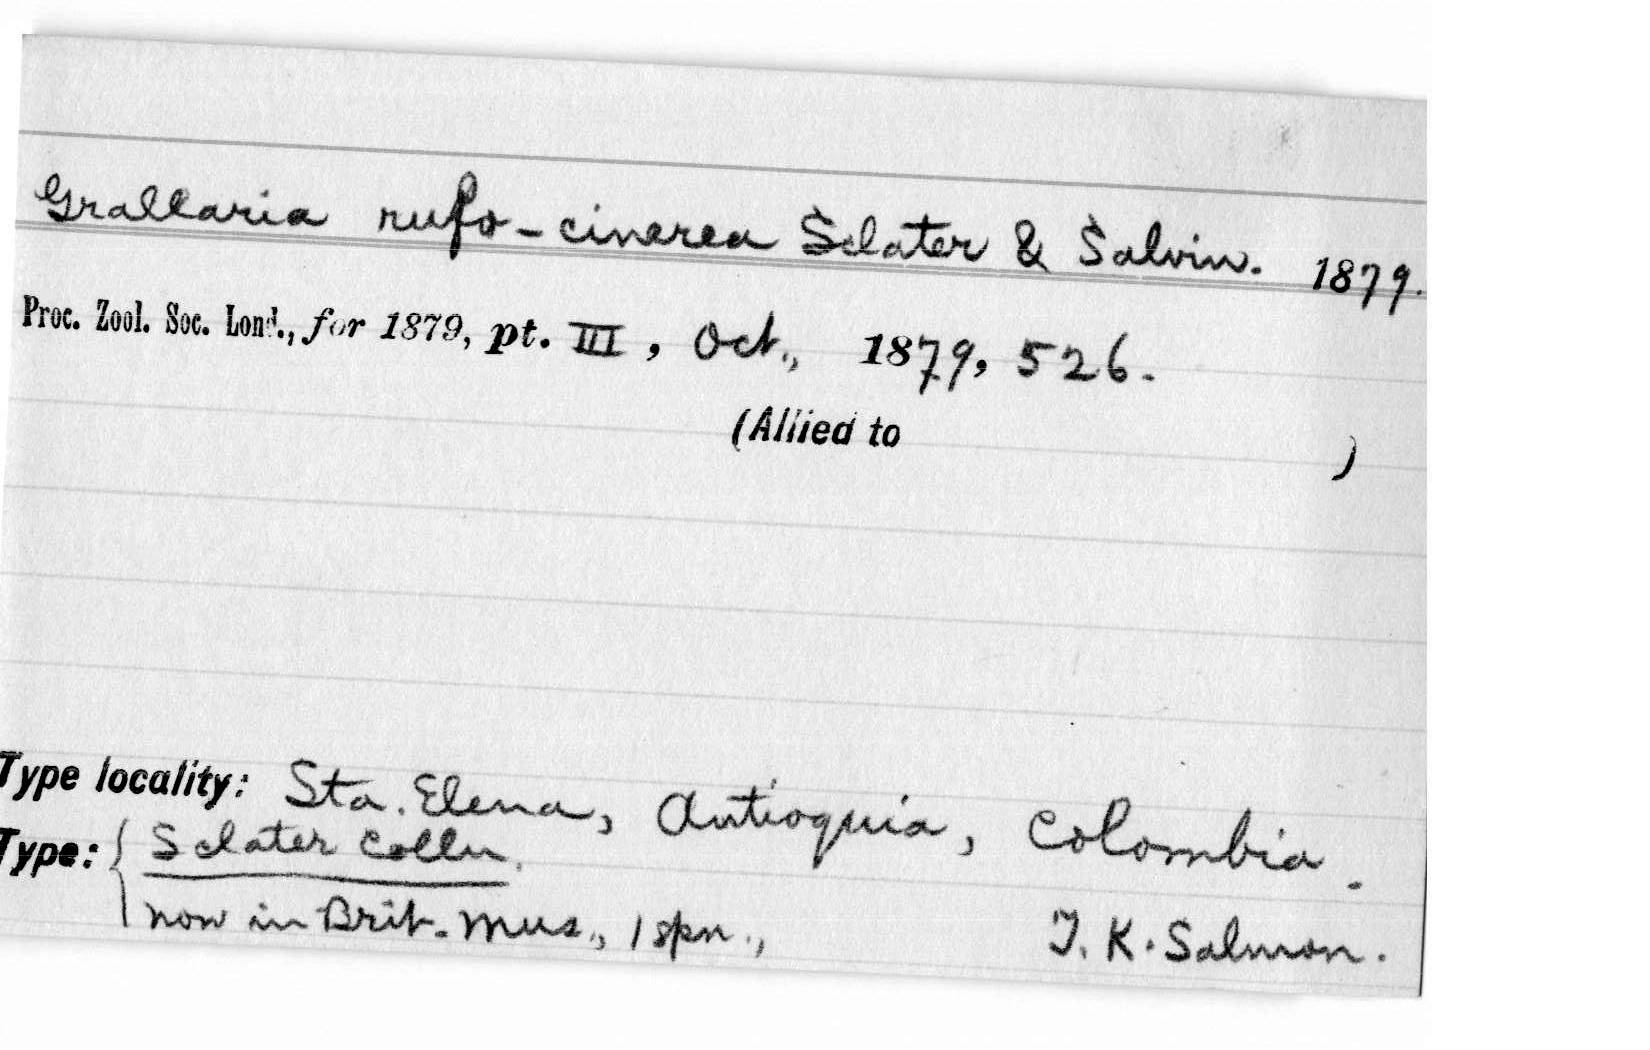 Grallaria rufo-cinerea Sclater & Salvin. 1879.
Proc. Zool. Soc. Lond., for 1879, pt. III, Oct., 1879, 526.
(Allied to )
Type locality: Sta. Elena, Antioquia, Colombia.
Type: { Sclater Colln.
now in Brit. Mus., 1 spn., T. K. Salmon.